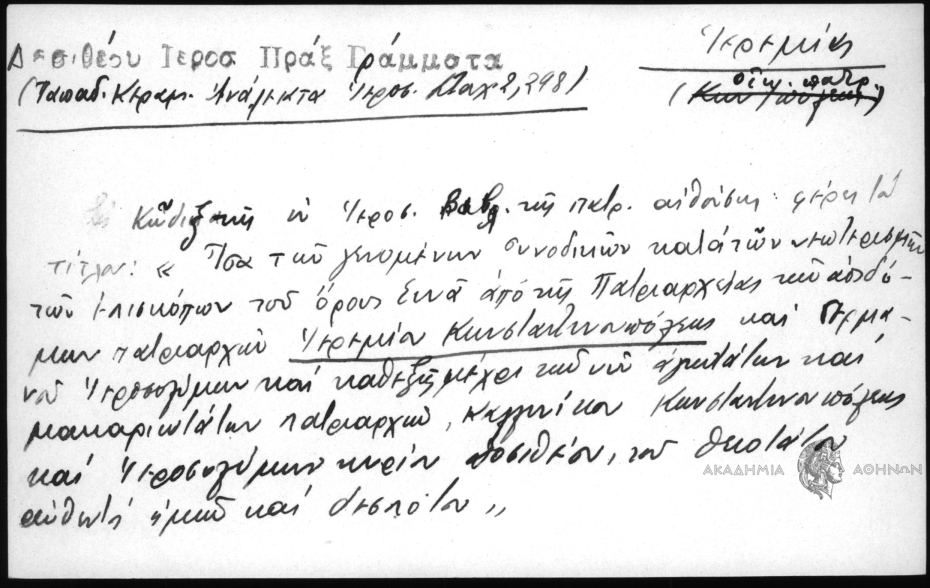 Δοσιθέου Ιεροσ Πράξ Γράμματα
Ἱερεμίας
(Παπαδ. Κεραμ. Ἀνάλεκτα Ἱεροσ. Σταχ 2, 298)
(Κων/πόλεως) οἰκ. πατρ.
Κῶδιξ τῆς ἐν Ἱεροσ. βιβλ. τῆς πατρ. αἰθούσης φέρει τὸν
τίτλον: « Ἴσα τῶν γενομένων συνοδικῶν κατὰ τῶν νεωτερισμῶν
τῶν ἐπισκόπων τοῦ ὄρους Σινᾶ ἀπὸ τῆς Πατριαρχείας τῶν ἀοιδί-
μων πατριαρχῶν Ἱερεμίου Κωνσταντινουπόλεως καὶ Γερμα-
νοῦ Ἱεροσολύμων καὶ καθεξῆς μέχρι τῶν νῦν ἁγιωτάτων καὶ
μακαριωτάτων πατριαρχῶν, Καλλινίκου Κωνσταντινουπόλεως
καὶ Ἱεροσολύμων κυρίου Δοσιθέου, τοῦ θειοτάτου
αὐθέντου ἡμῶν καὶ δεσπότου »
ΑΚΑΔΗΜΙΑ ΑΘΗΝΩΝ